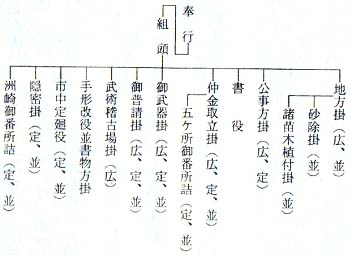 奉行
組頭
地方掛（広、並）
砂除掛（並）
諸苗木植付掛（並）
公事方掛（広、定）
書役
仲金取立掛（広、定、並）
五ケ所御番所詰（定、並）
御武器掛（広、定）
御普請掛（広、定、並）
武術稽古場掛（広）
手形改役並書物方掛
市中定廻役（定、並）
隠密掛（定、並）
洲崎御番所詰（定、並）